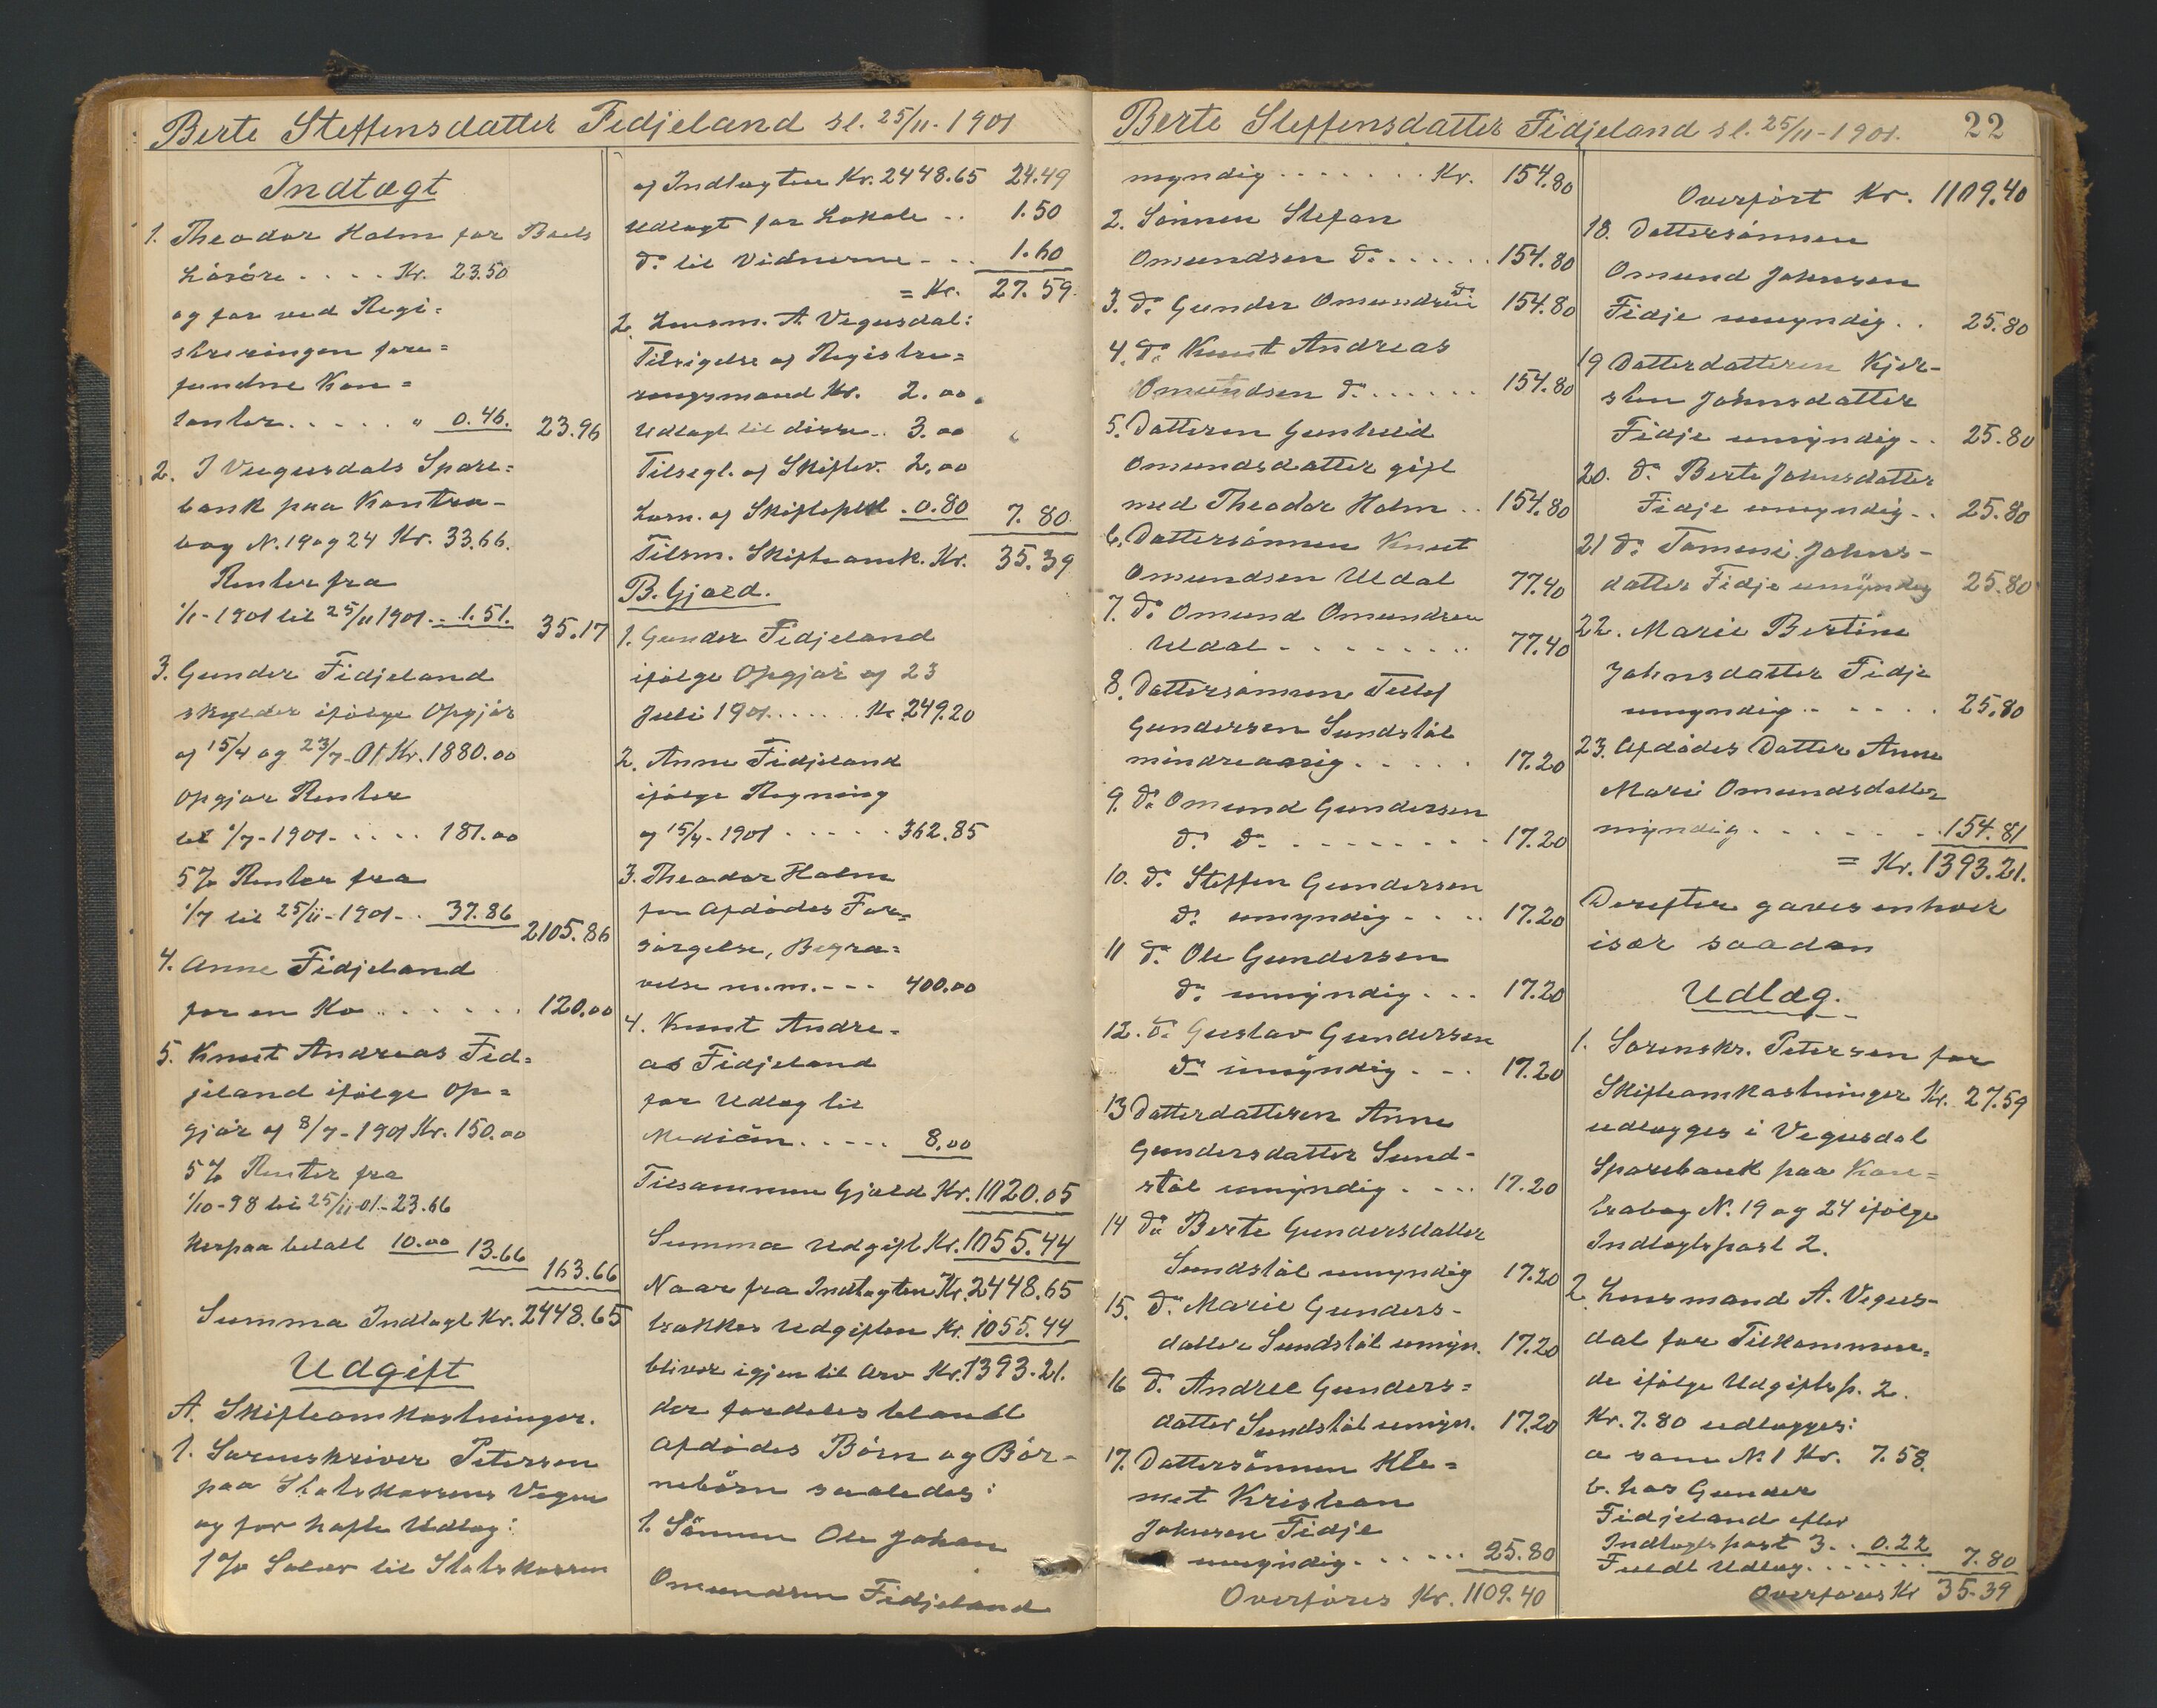 Berte Steffensdatter Fidjeland sl. 25/11-1901
Indtægt
1. Theodor Holm for Boets
Løsøre .... Kr. 23.50
og for ved Regi=
streringen fore=
fundne Kon=
tanter..... " 0.46. 23.96
2. I Vegusdals Spare=
bank paa Kontra-
bog N. 19 og 24 Kr. 33.66.
Renter fra
1/1-1901 til 25/11 1901.. 1.51. 35.17
3. Gunder Fidjeland
skylder ifølge Opgjør
af 15/4 og 23/7-01 Kr. 1880.00
opgjor Renter
til 1/7-1901..... 187.00
5% Renter fra
1/7 til 25/11-1901-.. 37.86 2105.86
4. Anne Fidjeland
for en Ko ....... 120.00
5. Knut Andreas Fid=
jeland ifølge Op=
gjør af 8/7-1901 Kr. 150.00
5% Renter fra
1/10-98 til 25/11-01.-23.66
herpaa betalt 10.00 13.66
163.66
Summa Indtægt Kr. 2448.65
Udgift
A. Skifteomkostninger.
1. Sorenskriver Petersen
paa Statskassens Vegne
og for hafte Udlæg:
1% Salær til Statskassen
af Indtægten Kr. 2448.65 24.49
Udlagt for Lokale .. 1.50
do til Vidnerne - .. 1.60
= Kr. 27.59.
2. Lensm. A. Vegusdal:
Tilsigelse af Registre=
ringsmænd Kr. 2.00.
Udlagt til disse.. 3.00
Tilsegl. af Skiftev. 2.00
Larn. af Skifteplkt .0.80 7.80
Tilsm. Skifteomk. Kr. 35.39
B. Gjæld.
1. Gunder Fidjeland
ifølge Opgjør af 23
Juli 1901...... Kr. 249.20
2. Anne Fidjeland
ifølge Regning
af 15/4-1901 ..... 362.85
3. Theodor Holm
for Afdødes For=
sørgelse, Begra=
velse m.m. --- 400.00
4. Knut Andre-
as Fidjeland
for Udlæg til
Medicin ..... 8.00
Tilsammen Gjæld Kr. 1020.05
Summa Udgift Kr. 1055.44
Naar fra Indtægten Kr. 2448.65
trækkes Udgiften Kr. 1055.44
bliver igjen til Arv Kr. 1393.21.
der fordeles blandt
Afdødes Børn og Bør-
nebørn saaledes:
1. Sønnen Ole Johan
Omundsen Fidjeland
Berte Steffensdatter Fidjeland sl. 25/11-1901. 22
myndig ....... Kr. 154.80
2. Sønnen Stefan
Omundsen do ...... 154.80
3. do Gunder Omundsen do 154.80
4. do Knut Andreas
Omundsen do ...... 154.80
5. Datteren Gunhild
Omundsdatter gift
med Theodor Holm .. 154.80
6. Dattersønnen Knut
Omundsen Uldal 77.40
7. do Omund Omundsen
Uldal ........ 77.40
8. Dattersønnen Tellef
Gundersen Sundstøl
mindreaarig ..... 17.20
9. do Omund Gundersen
do do ......... 17.20
10. do Steffen Gundersen
do umyndig .... 17.20
11 do Ole Gundersen
do umyndig ... 17.20
12. do Gustav Gundersen
do umyndig . -. 17.20
13 Datterdatteren Anne
Gundersdatter Sund-
støl umyndig .... 17.20
14 do Berte Gundersdatter
Sundstøl umyndig 17.20
15. do Marie Gunders-
datter Sundstøl umyn. 17.20
16 do Andree Gunders=
datter Sundstøl umyn. 17.20
17. Dattersønnen Kle=
met Kristian
Johnsen Fidje
umyndig ...... 25.80
Overføres Kr. 1109.40
Overført Kr. 1109.40
18. Dattersønnen
Omund Johnsen
Fidje umyndig .. 25.80
19 Datterdatteren Kjer-
sten Johnsdatter
Fidje umyndig .. 25.80
20. do Berte Johnsdatter
Fidje umyndig .. 25.80
21 do Tomine Johns-
datter Fidje umyndig 25.80
22. Marie Bertine
Johnsdatter Fidje
umyndig ..... 25.80
23. Afdødes Datter Anne
Marie Omundsdatter
myndig ....... 154.81
= Kr. 1393.21.
Derefter gaves enhver
især saadan
Udlæg.
1. Sorenskr. Petersen for
Skifteomkostninger Kr. 27.59
udlægges i Vegusdal
Sparebank paa Kon=
trabog N. 19 og 24 ifølge
Indtægtspost 2.
2. Lensmand A. Vegus-
dal for Tilkommen=
de ifølge Udgiftsp. 2.
Kr. 7.80 udlægges:
a som N. 1 Kr. 7.58.
b. hos Gunder
Fidjeland efter
Indtægtspost 3.. 0.22
Fuldt Udlæg...... 7.80
Overføres Kr 35.39